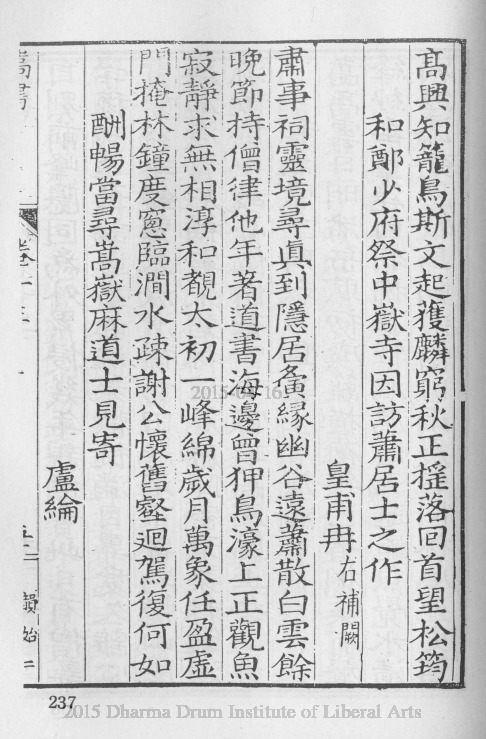 高興知籠鳥斯文起獲麟窮秋正揺落回首望松筠
和鄭少府祭中嶽寺因訪蕭居士之作
皇甫冉右補闕
肅事祠靈境尋真到隱居夤緣幽谷遠蕭散白雲餘
晚節持僧律他年著道書海邊曾狎鳥濠上正觀魚
寂靜求無相淳和覩太初一峰綿歲月萬象任盈虛
門掩林鐘度窻臨澗水疎謝公懷舊壑迴駕復何如
酬暢當尋嵩嶽麻道士見寄
盧綸
嵩書
237
2015-04-16
2015 Dharma Drum Institute of Liberal Arts